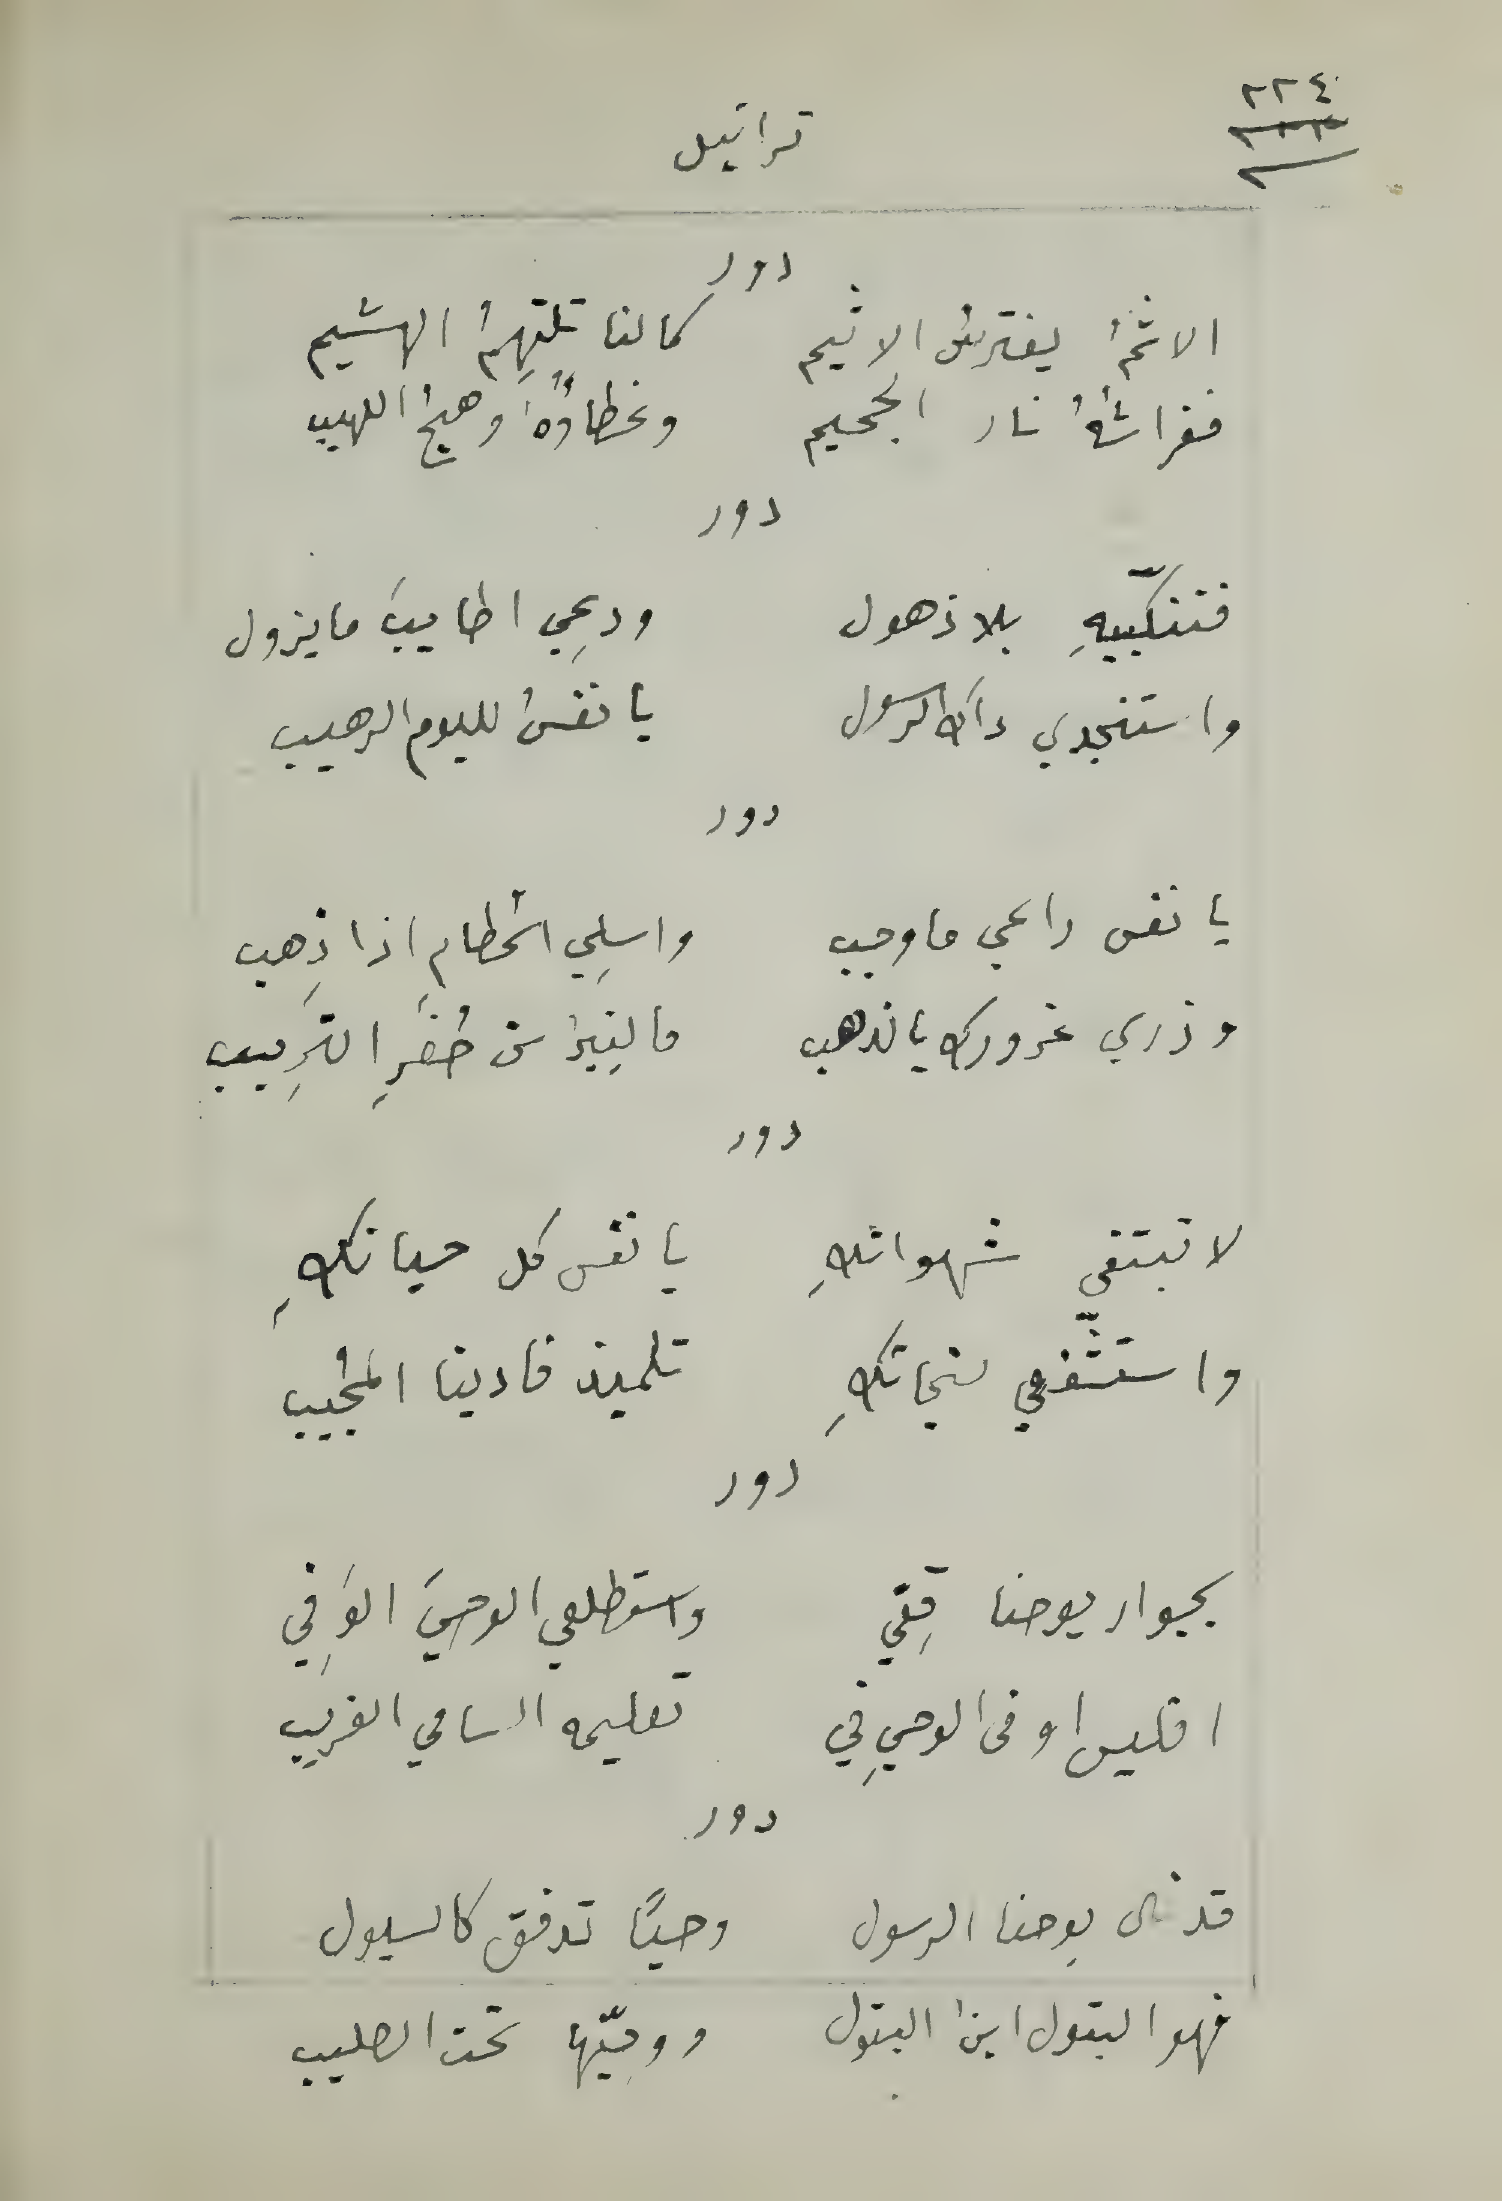 ٢٢٤
تراتيل
دور
الاثمُ يفترسُ الاثيم كالنا تلتهِمُ الهشيم
ففراشهُ نار الجحيم وغطاؤُهُ وهيجُ اللهيب
دور
فتنكّبيهِ بلا ذهول ودعِي اطاييبَ ما يزول
واستنجدي ذاك الرسول يا نفسُ لليوم الرهيب
دور
يا نفس راعي ما وجب واسلِي الحطامِ اذا ذِهب
وذري غرورك بالذهب ظُفَرِ التَرِيب
دور
لا تبتغي شهواتكِ يا نفس كل حياتكِ
واستشّفعي لنجاتكِ تلميذ فادينا المُجيب
دور
بجوار يوحنا قِفي واستطلعي الوحيَ الوَفِي
افليس اوفى الوحيِ في تعليمه السامي الغريب
دور
قد يوحنا الرسول وحيًا تدفق كالسيول
فهو البتول ابنُ البتول ووصيّها تحت الصليب